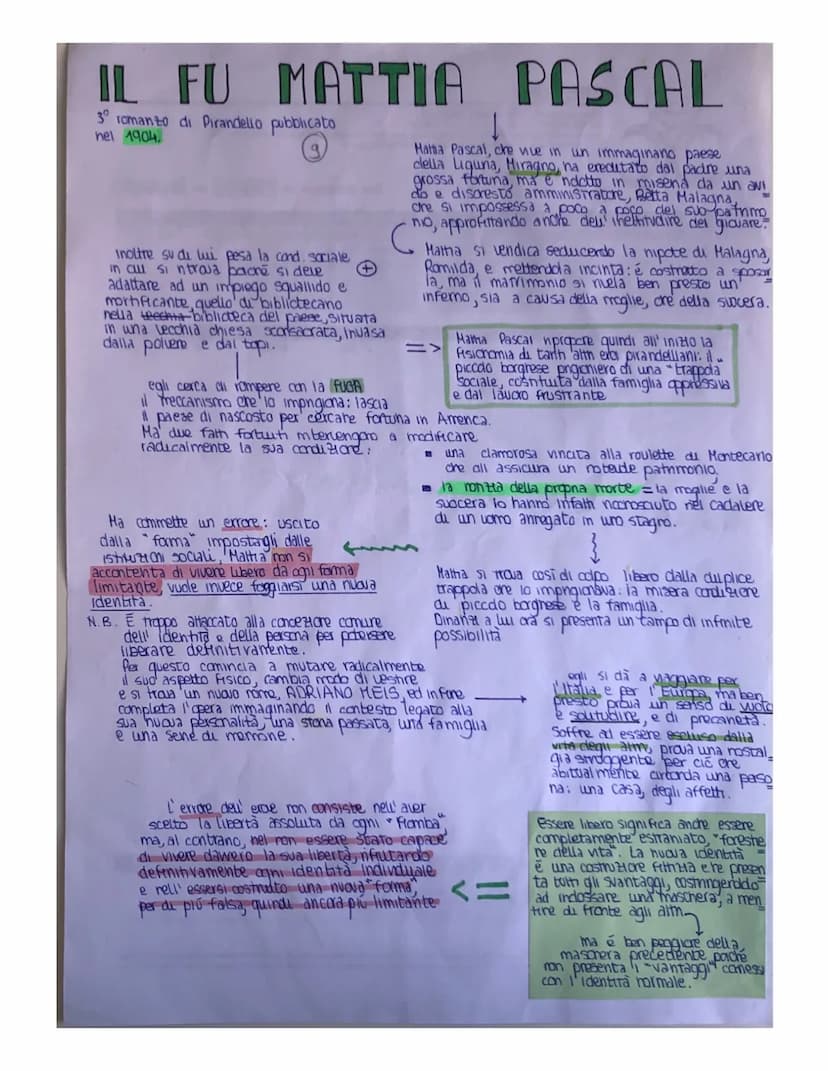 IL FU MATTIA PASCAL
3° romanzo di Pirandello pubblicato
nel 1904.
9
Mattia Pascal, che vive in un immaginario paese
della Liguria, Miragno, ha ereditato dal padre una
grossa fortuna, ma è ridotto in miseria da un avi
do e disonesto amministratore, Batta Malagna,
che si impossessa a poco a poco del suo patrimo
nio, approfittando anche dell'inettitudine del giovane.
Mattia si vendica seducendo la nipote di Malagna,
Romilda, e mettendola incinta: è costretto a sposar
la, ma il matrimonio si rivela ben presto un
inferno, sia a causa della moglie, che della suocera.
+
Inoltre su di lui pesa la cond. sociale
in cui si ritrova poiché si deve
adattare ad un impiego squallido e
mortificante, quello di bibliotecario
nella vecchia biblioteca del paese, situata
in una vecchia chiesa sconsacrata, invasa
dalla polvere e dai topi.
=> Mattia Pascal ripropone quindi all'inizio la
fisionomia di tanti altri eroi pirandelliani: il
piccolo borghese prigioniero di una "trappola
sociale, costituita dalla famiglia oppressiva
e dal lavoro frustrante
egli cerca di rompere con la FUGA
il meccanismo che lo imprigiona: lascia
il paese di nascosto per cercare fortuna in America.
Ma due fatti fortuiti intervengono a modificare
radicalmente la sua condizione:
▪ una clamorosa vincita alla roulette di Montecarlo
che gli assicura un notevole patrimonio,
▪ la notizia della propria morte = la moglie e la
suocera lo hanno infatti riconosciuto nel cadavere
di un uomo annegato in uno stagno.
Mattia si trova così di colpo libero dalla duplice
trappola che lo imprigionava: la misera condizione
di piccolo borghese e la famiglia.
Dinanzi a lui ora si presenta un campo di infinite
possibilità
Ma commette un errore: uscito
dalla "forma" impostagli dalle
istituzioni sociali, Mattia non si
accontenta di vivere libero da ogni forma
limitante, vuole invece foggiarsi una nuova
identità.
N.B. È troppo attaccato alla concezione comune
dell'identità e della persona per potersene
liberare definitivamente.
Per questo comincia a mutare radicalmente
il suo aspetto fisico, cambia modo di vestire
e si trova un nuovo nome, ADRIANO MEIS, ed infine
completa l'opera immaginando il contesto legato alla
sua nuova personalità, una storia passata, una famiglia
e una serie di memorie.
egli si dà a viaggiare per
l'Italia e per l'Europa ma ben
presto prova un senso di vuoto
e solitudine, e di precarietà.
Soffre ad essere escluso dalla
vita degli altri, prova una nostal
gia struggente per ciò che
abitualmente circonda una perso
na: una casa, degli affetti.
Essere libero significa anche essere
completamente estraniato, "forestie
re della vita". La nuova identità
è una costruzione fittizia che presen
ta tutti gli svantaggi, costringendolo
ad indossare una maschera, a men
tire di fronte agli altri.
ma è ben peggiore della
maschera precedente poiché
non presenta i "vantaggi" connessi
con l'identità normale.
<= L'errore dell'eroe non consiste nell'aver
scelto la libertà assoluta da ogni "
ma, al contrario, nel non essere stato capace
di vivere davvero la sua libertà, rifiutando
definitivamente ogni identità individuale
e nell'essersi costruito una nuova "forma",
per di più falsa, quindi ancora più limitante